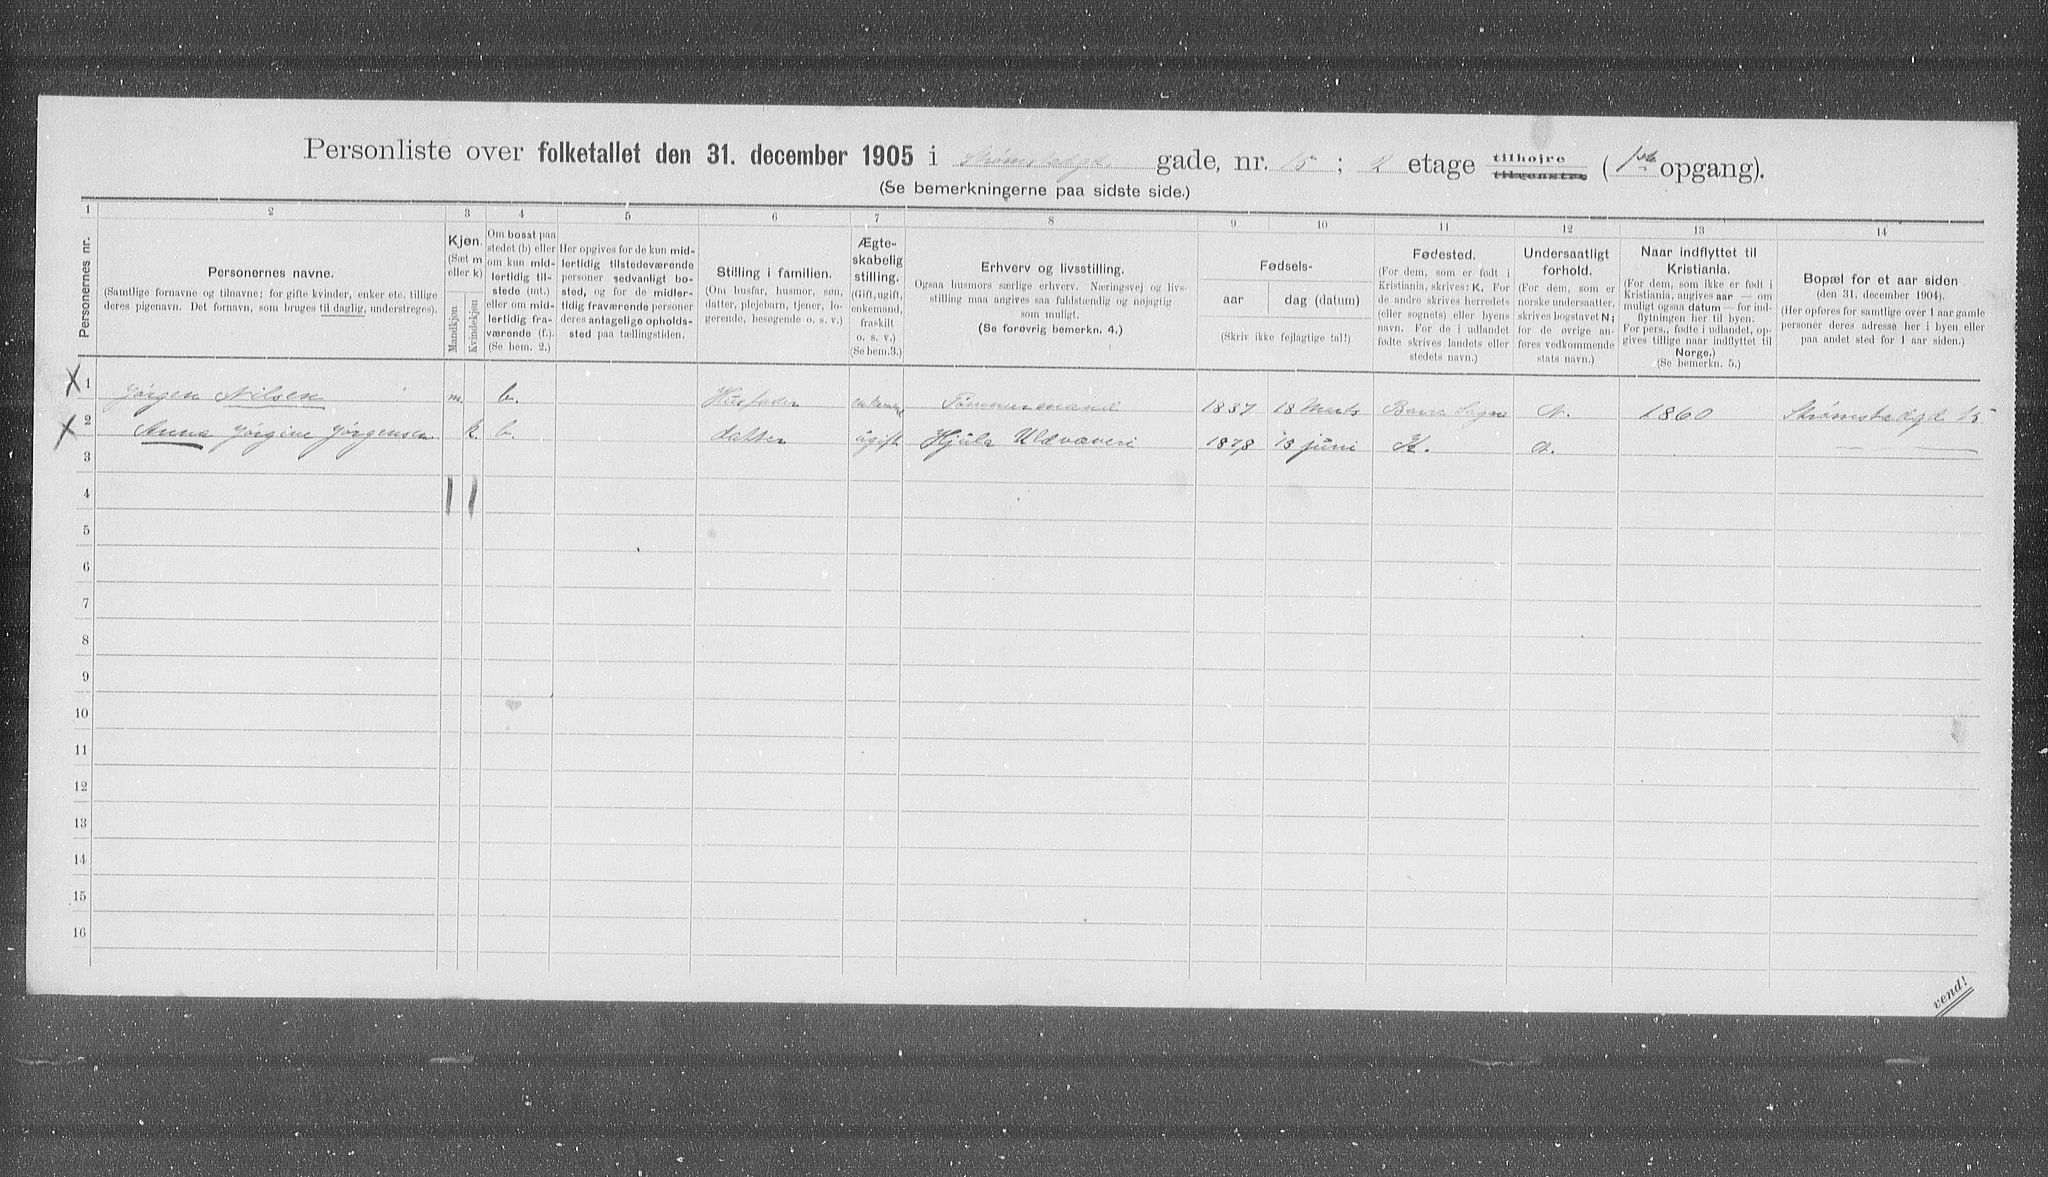 Personliste over folketallet den 31. december 1905 i Strømstadgd. gade, nr. 15 ; 2 etage tilhøjre tilvenstre (1ste opgang).
(Se bemerkningerne paa sidste side.)
1 2 3 4 5 6 7 8 9 10 11 12 13 14
Personernes nr.
Personernes navne.
(Samtlige fornavne og tilnavne; for gifte kvinder, enker etc. tillige
deres pigenavn. Det fornavn, som bruges til daglig, understreges).
Kjøn.
(Sæt m
eller k)
Mandkjøn
Kvindekjøn
Om bosat paa
stedet (b) eller
om kun mid-
lertidig til-
stede (mt.)
eller om mid-
lertidig fra-
værende (f.).
(Se bem. 2.)
Her opgives for de kun mid-
lertidig tilstedeværende
personer sedvanligt bo-
sted, og for de midler-
tidig fraværende personer
deres antagelige opholds-
sted paa tællingstiden.
Stilling i familien.
(Om husfar, husmor, søn,
datter, plejebarn, tjener, lo-
gerende, besøgende o. s. v.)
Ægte-
skabelig
stilling.
(Gift, ugift,
enkemand,
fraskilt
o. s. v.)
(Se bem. 3.)
Erhverv og livsstilling.
Ogsaa husmors særlige erhverv. Næringsvej og livs-
stilling maa angives saa fuldstændig og nøjagtig
som muligt.
(Se forøvrig bemerkn. 4.)
Fødsels-
aar dag (datum)
(Skriv ikke fejlagtige tal!)
Fødested.
(For dem, som er født i
Kristiania, skrives: K. For
de andre skrives herredets
(eller sognets) eller byens
navn. For de i udlandet
fødte skrives landets eller
stedets navn.)
Undersaatligt
forhold.
(For dem, som er
norske undersaatter,
skrives bogstavet N;
for de øvrige an-
føres vedkommende
stats navn.)
Naar indflyttet til
Kristiania.
(For dem, som ikke er født i
Kristiania, angives aar — om
muligt ogsaa datum — for ind-
flytningen her til byen.
For pers., fødte i udlandet, op-
gives tillige naar indflyttet til
Norge.)
(Se bemerkn. 5.)
Bopæl for et aar siden
(den 31. december 1904).
(Her opføres for samtlige over 1 aar gamle
personer deres adresse her i byen eller
paa andet sted for 1 aar siden.)
X 1 Jørgen Nilsen m. b. Husfader enkemd Tømmermand 1837 18 Marts N. 1860 Strømstadgd 15
X 2 Anna Jørgine Jørgensen k. b. datter ugift Hjula Uldvæveri 1878 13 juni K. N. — —
3
4
5
6
7
8
9
10
11
12
13
14
15
16
vend!